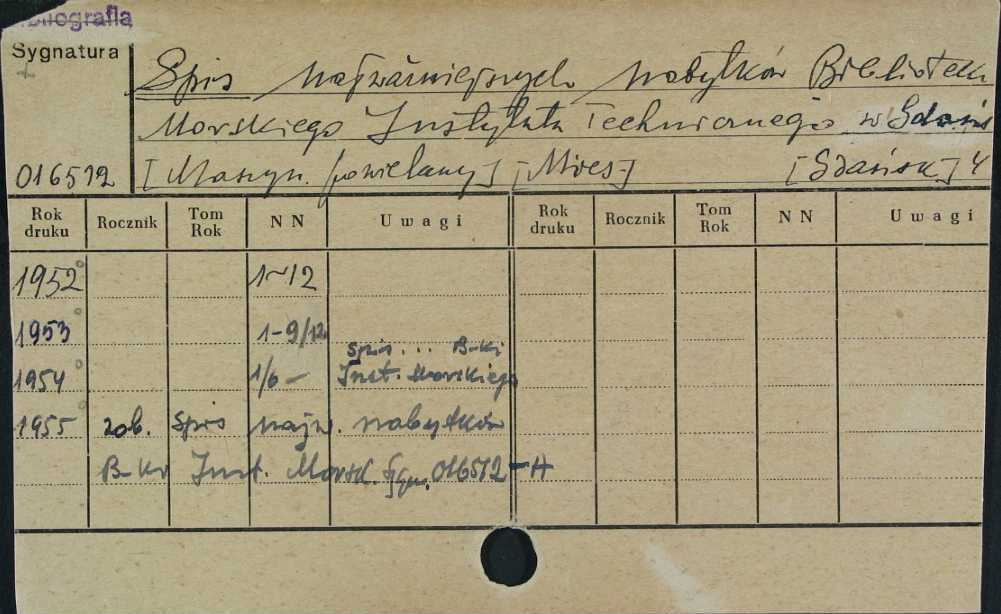 Bibliografia
Sygnatura
Spis najważniejszych nabytków Bibliotek
Morskiego Instytutu Technicznego w Gdańs
016512 [Maszyn. powielany] [Mies.] [Gdańsk] 4
Rok druku Rocznik Tom Rok NN Uwagi Rok druku Rocznik Tom Rok NN Uwagi
1952 1-12
1953 1-9/12
Spis ... B-ki
1954 1/6- Inst. Morskiego
1955 zob. Spis najw. nabytków
B-ki Inst. Morsk. Sygn. 016512-A